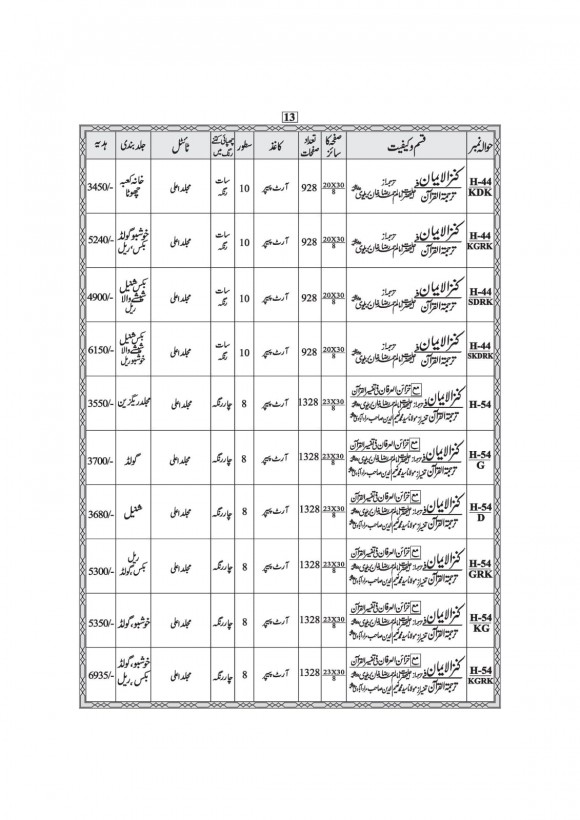 13
حوالہ نمبر | قسم و کیفیت | صفحہ کا سائز | تعداد صفحات | کاغذ | سطور | چھپائی کتنے رنگ میں | ٹائٹل | جلد بندی | ہدیہ
H-44 KDK | کنزالایمان فی ترجمۃ القرآن | 20X30/8 | 928 | آرٹ پیپر | 10 | سات رنگہ | مجلد اعلیٰ | خانہ کعبہ چھوٹا | 3450/-
H-44 KGRK | کنزالایمان فی ترجمۃ القرآن | 20X30/8 | 928 | آرٹ پیپر | 10 | سات رنگہ | مجلد اعلیٰ | خوشبو گولڈ بکس، ریل | 5240/-
H-44 SDRK | کنزالایمان فی ترجمۃ القرآن | 20X30/8 | 928 | آرٹ پیپر | 10 | سات رنگہ | مجلد اعلیٰ | بکس شنیل شیشے والا ریل | 4900/-
H-44 SKDRK | کنزالایمان فی ترجمۃ القرآن | 20X30/8 | 928 | آرٹ پیپر | 10 | سات رنگہ | مجلد اعلیٰ | بکس شنیل شیشے والا خوشبو ریل | 6150/-
H-54 | کنزالایمان فی ترجمۃ القرآن مع خزائن العرفان فی تفسیر القرآن | 23X30/8 | 1328 | آرٹ پیپر | 8 | چار رنگہ | مجلد اعلیٰ | مجلد ریگزین | 3550/-
H-54 G | کنزالایمان فی ترجمۃ القرآن مع خزائن العرفان فی تفسیر القرآن | 23X30/8 | 1328 | آرٹ پیپر | 8 | چار رنگہ | مجلد اعلیٰ | گولڈ | 3700/-
H-54 D | کنزالایمان فی ترجمۃ القرآن مع خزائن العرفان فی تفسیر القرآن | 23X30/8 | 1328 | آرٹ پیپر | 8 | چار رنگہ | مجلد اعلیٰ | شنیل | 3680/-
H-54 GRK | کنزالایمان فی ترجمۃ القرآن مع خزائن العرفان فی تفسیر القرآن | 23X30/8 | 1328 | آرٹ پیپر | 8 | چار رنگہ | مجلد اعلیٰ | ریل بکس، گولڈ | 5300/-
H-54 KG | کنزالایمان فی ترجمۃ القرآن مع خزائن العرفان فی تفسیر القرآن | 23X30/8 | 1328 | آرٹ پیپر | 8 | چار رنگہ | مجلد اعلیٰ | خوشبو گولڈ | 5350/-
H-54 KGRK | کنزالایمان فی ترجمۃ القرآن مع خزائن العرفان فی تفسیر القرآن | 23X30/8 | 1328 | آرٹ پیپر | 8 | چار رنگہ | مجلد اعلیٰ | خوشبو گولڈ بکس، ریل | 6935/-